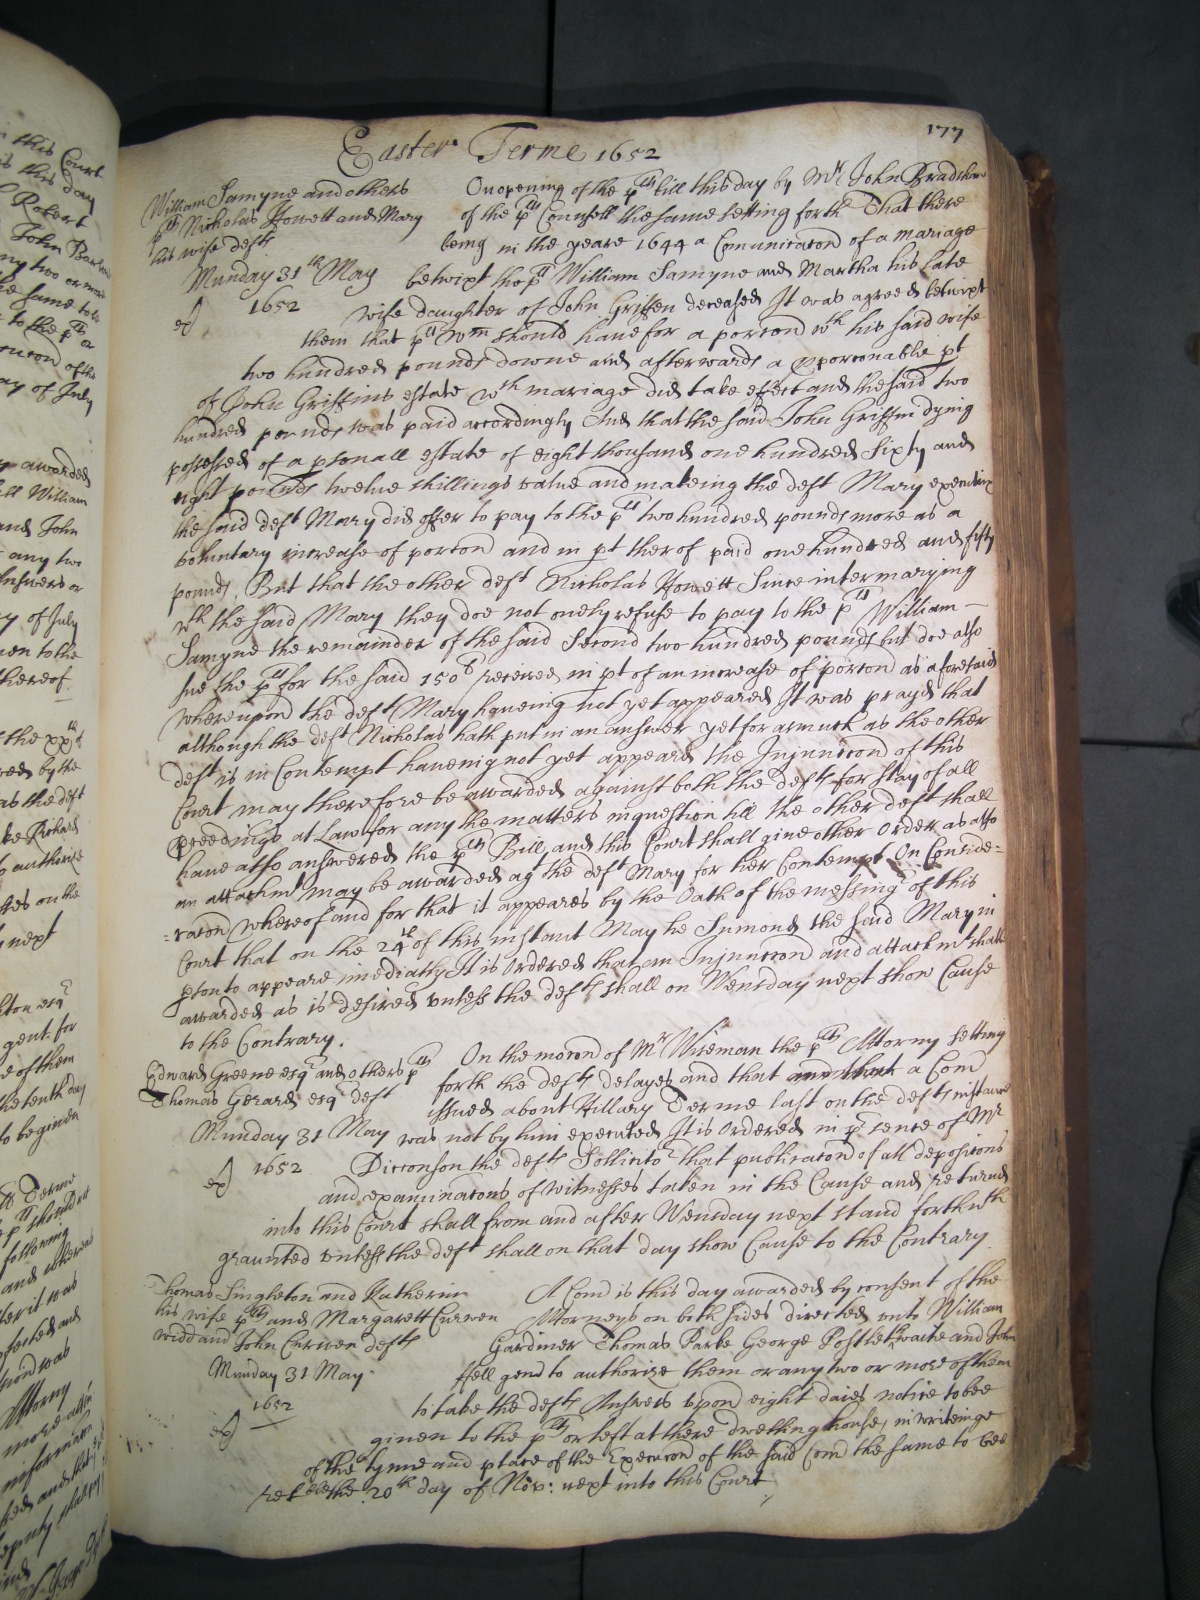 177
Easter Terme 1652
William Samyne and others
plts Nicholas Howett and Mary
his wife defts
Munday 31th May
1652
On opening of the plts bill this day by Mr John Bradshaw
of the plts Counsell the same setting forth That there
being in the yeare 1644 a Comunicacon of a mariage
betwixt the plt William Samyne and Martha his late
wife daughter of John Griffin deceased It was agreed betwixt
them that plt Wm should have for a porcon wth his said wife
two hundred pounds downe and afterwards a pporconable pt
of John Griffins estate wch mariage did take effect and the said two
hundred pounds was paid accordingly And that the said John Griffin dying
possessed of a psonall estate of eight thousand one hundred Sixty and
eight pounds twelve shillings value and makeing the deft Mary executrix
the said deft Mary did offer to pay to the plt two hundred pounds more as a
voluntary increase of porcon and in pt therof paid one hundred and fifty
pounds. But that the other deft Nicholas Howett Since intermarying
wth the said Mary they doe not onely refuse to pay to the plt William
Samyne the remainder of the said Second two hundred pounds but doe also
sue the plt for the said 150l received in pt of an increase of porcon as aforesaid
Whereupon the deft Mary haveing not yet appeared It was prayed that
although the deft Nicholas hath put in an answer yet for asmuch as the other
deft is in Contempt haveing not yet appeared the Injunccon of this
Court may therefore be awarded against both the defts for stay of all
pceedings at Law for any the matters in question till the other deft shall
have also answered the plts Bill and this Court shall give other Order as also
an attachmt may be awarded agt the deft Mary for her Contempt On Conside=
=racon whereof and for that it appeares by the Oath of the messingr of this
Court that on the 24th of this instant May he Sumond the said Mary in
pson to appeare imediatly It is Ordered that an Injunccon and attachmt shalbe
awarded as is desired unless the defts shall on Wensday next show Cause
to the Contrary.
Edward Greene esqr and others plts
Thomas Gerard esqr deft
Munday 31 May
1652
On the mocon of Mr Wiseman the plts Attorny setting
forth the defts delayes and that and that a Com
issued about Hillary Terme last on the defts instance
was not by him executed It is Ordered in psence of Mr
Dicconson the defts Sollicitor that publicacon of all deposicons
and examinacons of witnesses taken in the Cause and returned
into this Court shall from and after Wensday next stand forthwth
graunted unless the deft shall on that day show Cause to the Contrary
Thomas Singleton and Katherin
his wife plts and Margarett Curwen
widd and John Curwen defts
Munday 31 May
1652
A Com is this day awarded by consent of the
Attorneys on both sides directed unto William
Gardiner Thomas Parke George Postlethwaite and John
Hell gent to authorize them or any two or more of them
to take the defts Answers upon eight daies notice to bee
given to the plts or left at there dwelling house, in writeinge
of the tyme and place of the Execucon of the said Com the same to bee
ret the 20th day of Nov: next into this Court